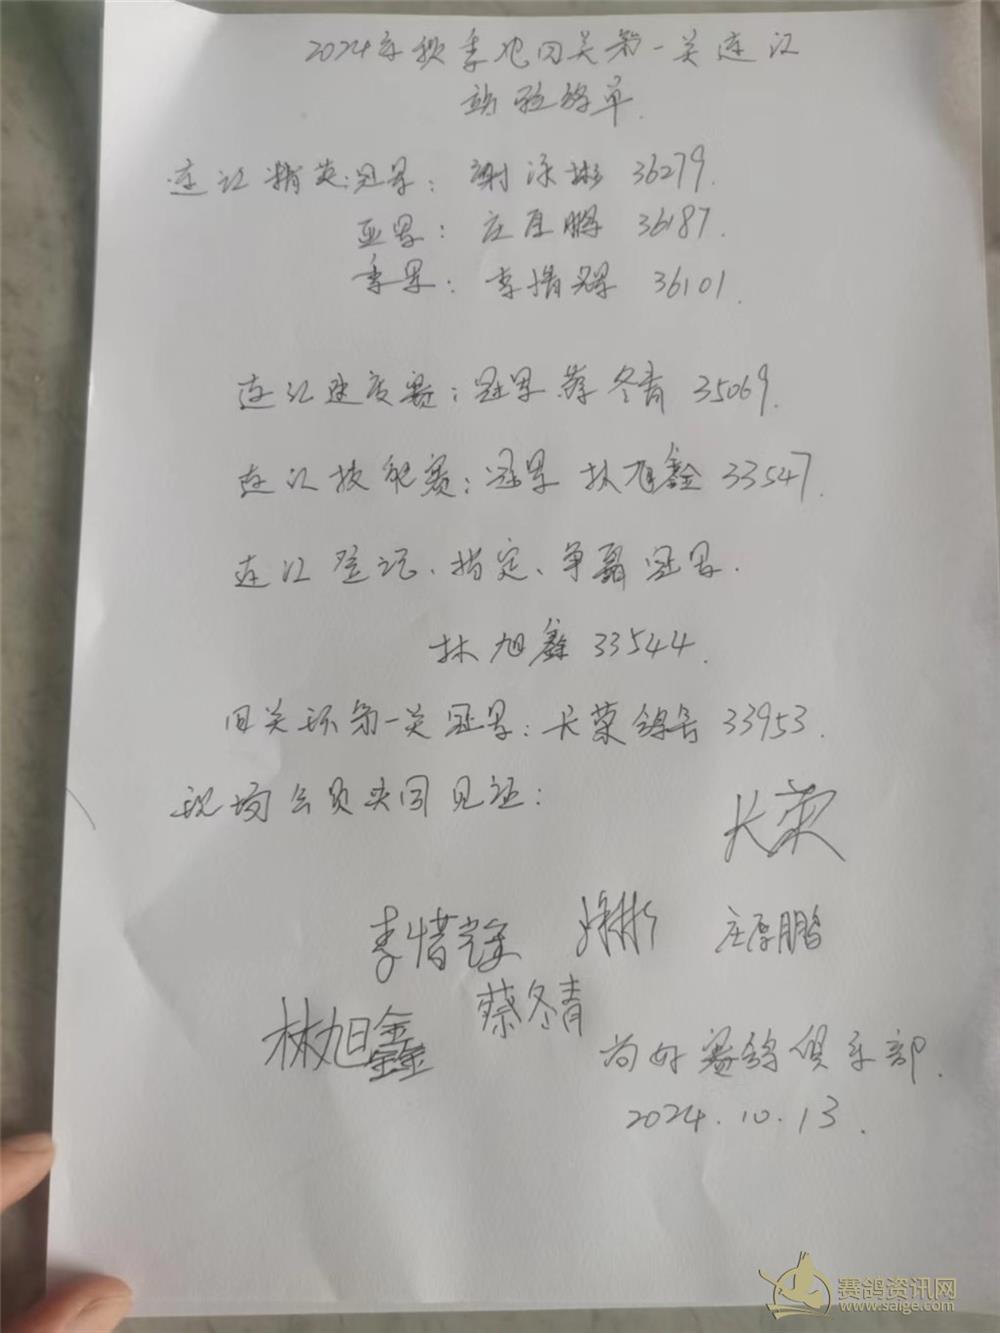 2024年秋季尼四关第一关连江
站验鸽单.
连江精英:冠军: 谢泳彬 36279.
亚军: 庄厚鹏 36187.
季军: 李惜辉 36101.
连江速度赛: 冠军 蔡冬青 35069.
连江技能赛: 冠军 林旭鑫 33547.
连江登记、指定、争霸冠军.
林旭鑫 33544.
四关环第一关冠军: 长荣鸽舍 33953.
现场会员共同见证:
长荣
李惜 彬 庄厚鹏
林旭鑫 蔡冬青
尚好赛鸽俱乐部.
2024.10.13.
赛鸽资讯网
www.saige.com